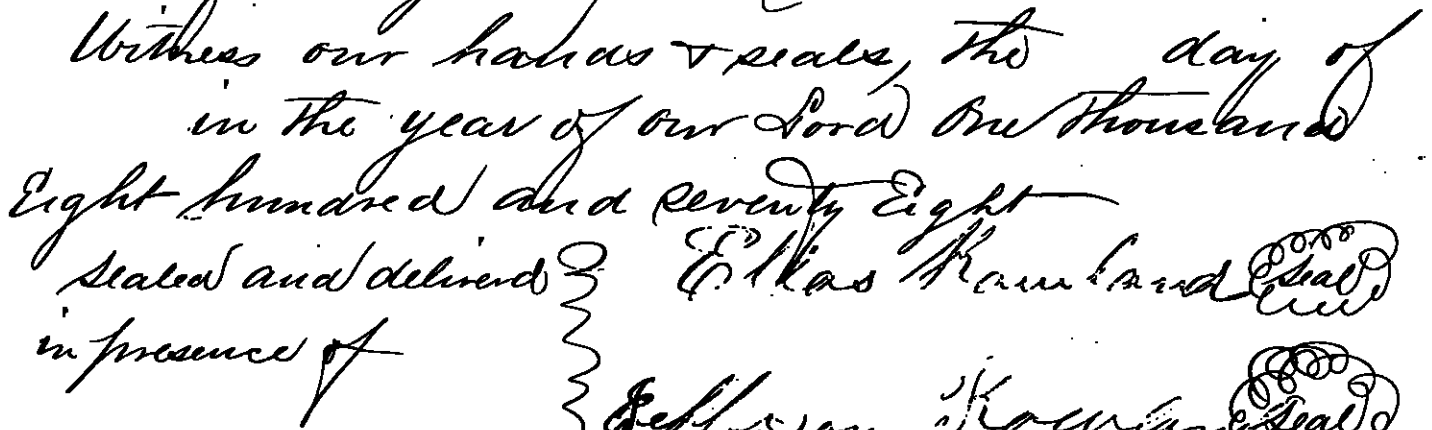 Witness our hands & seals, the day of
in the year of our Lord One thousand
Eight hundred and seventy Eight
sealed and deliverd
in presence of
Elias Rowland seal
seal